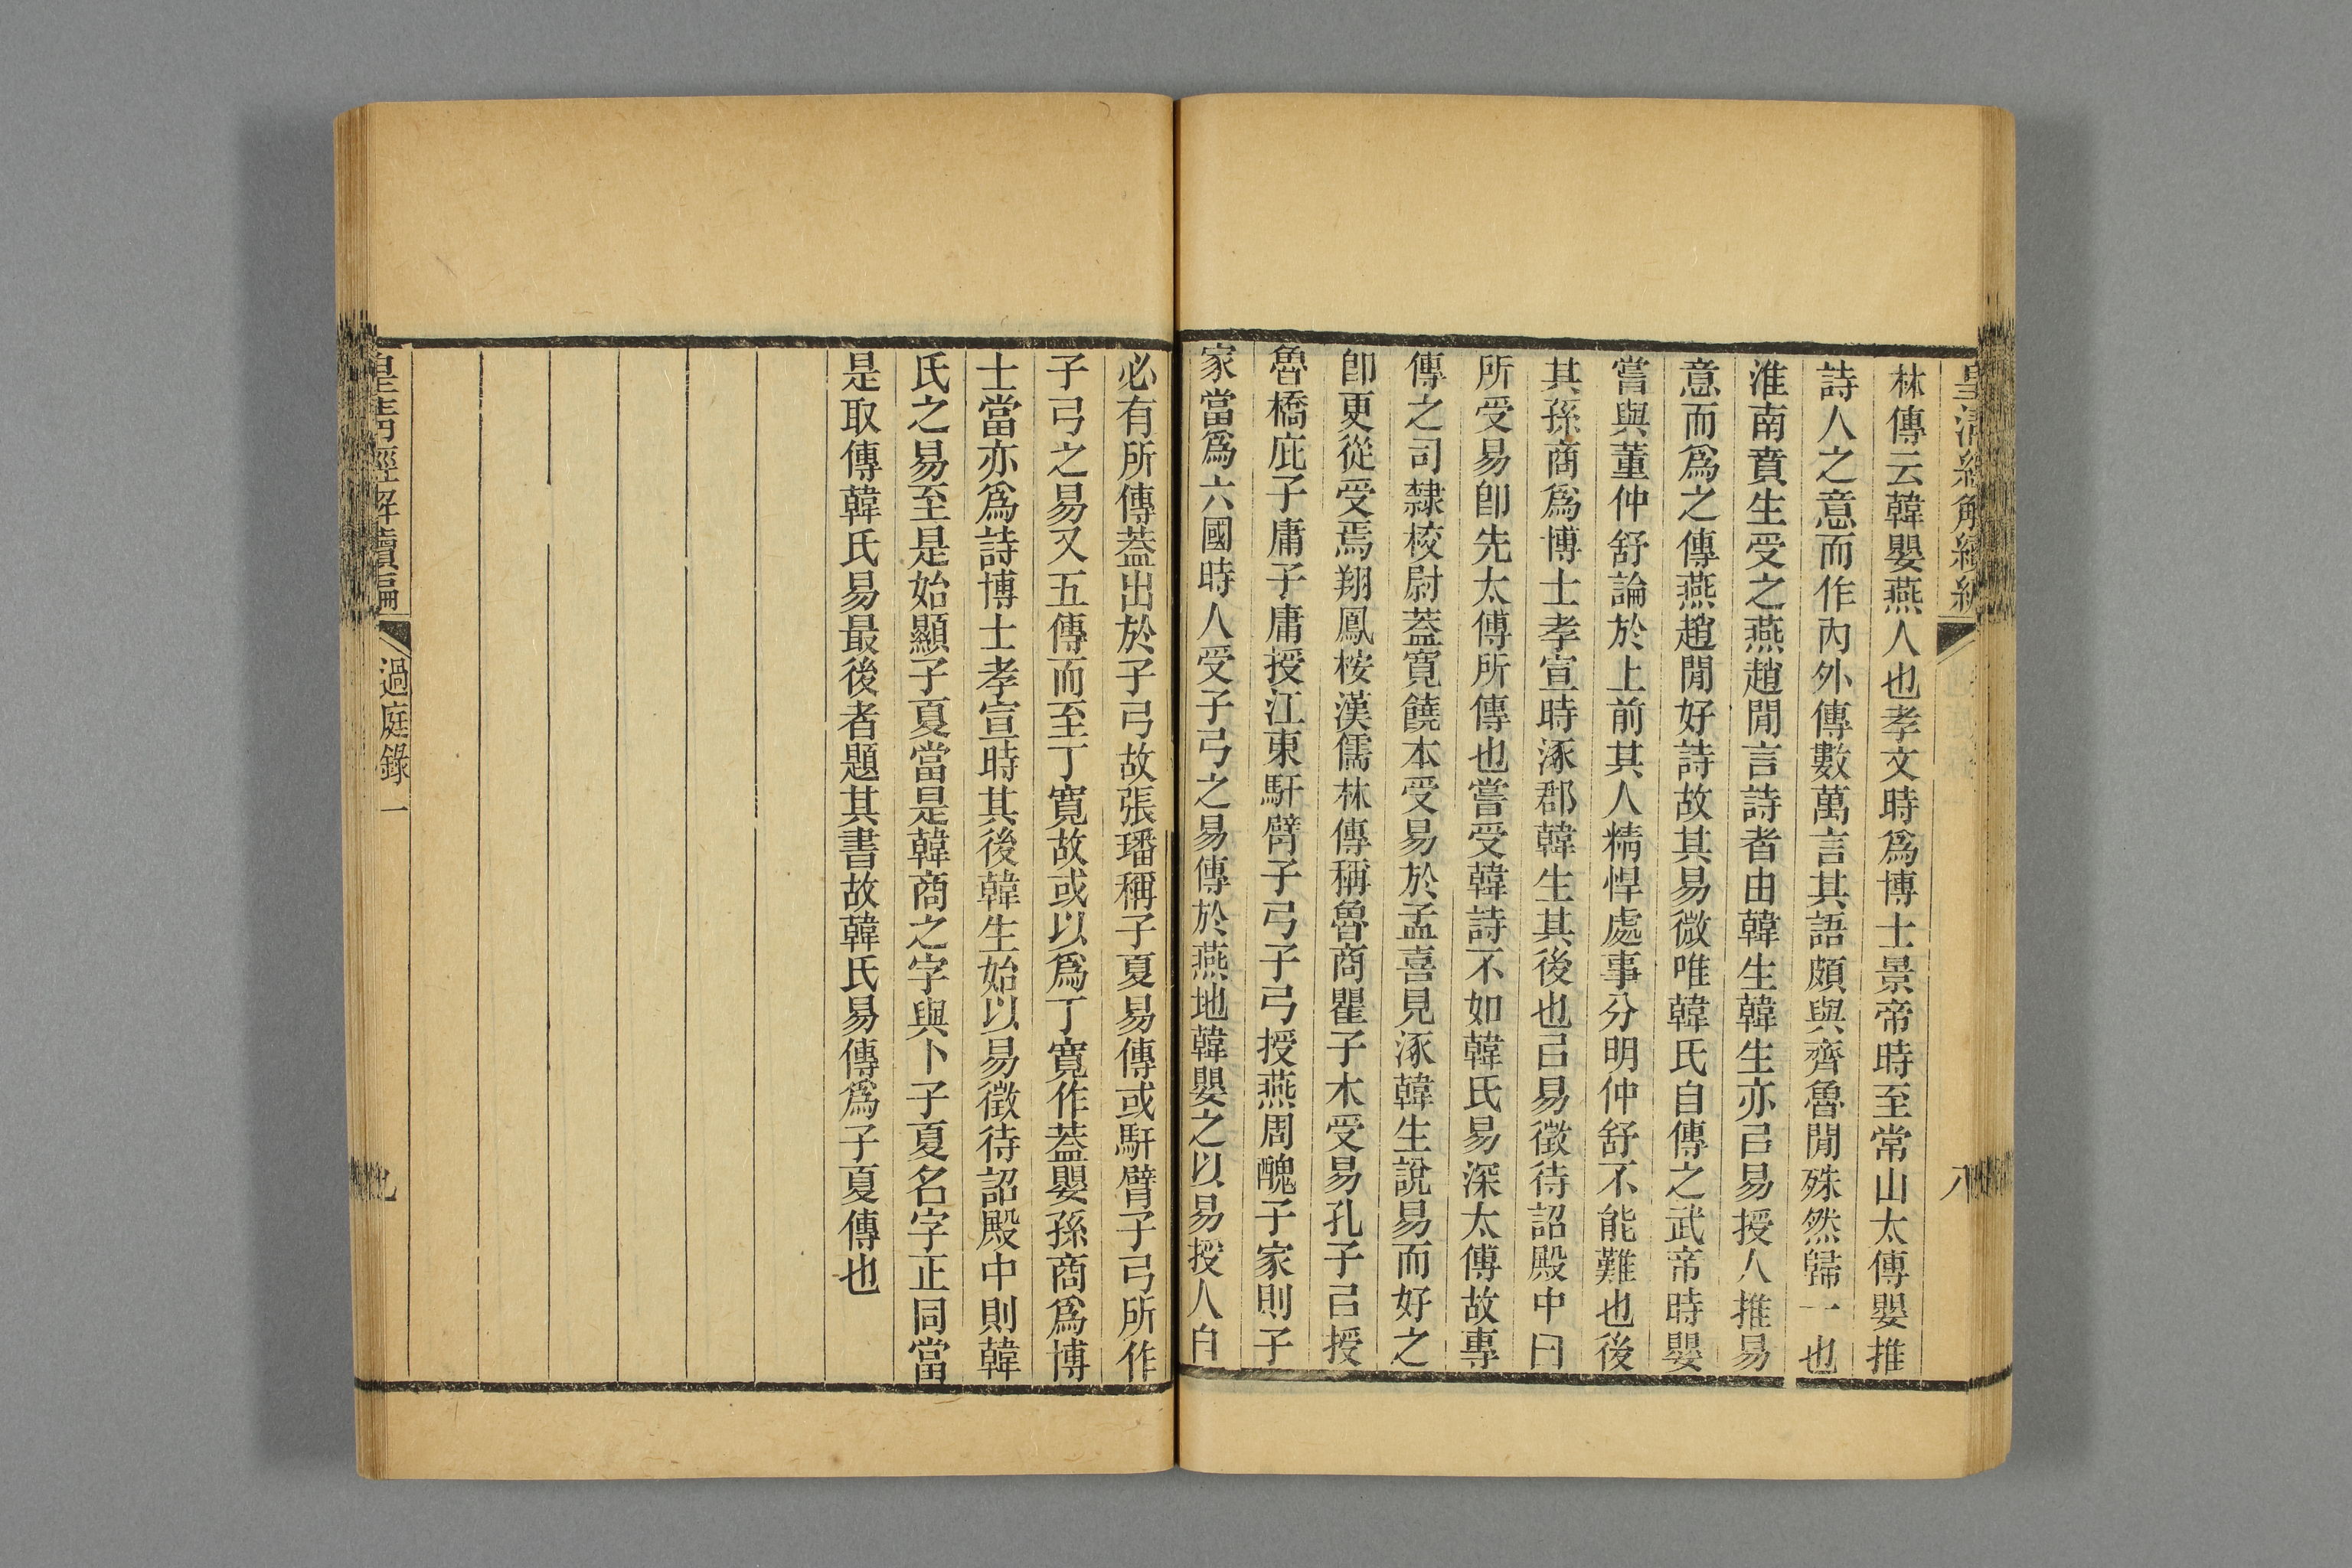 皇清經解續編
八
林傳云韓嬰燕人也孝文時爲博士景帝時至常山太傅嬰推
詩人之意而作內外傳數萬言其語頗與齊魯閒殊然歸一也
淮南賁生受之燕趙閒言詩者由韓生韓生亦㠯易授人推易
意而爲之傳燕趙閒好詩故其易微唯韓氏自傳之武帝時嬰
嘗與董仲舒論於上前其人精悍處事分明仲舒不能難也後
其孫商爲博士孝宣時涿郡韓生其後也㠯易徵待詔殿中曰
所受易卽先太傅所傳也嘗受韓詩不如韓氏易深太傅故專
傳之司隸校尉葢寬饒本受易於孟喜見涿韓生說易而好之
卽更從受焉翔鳳桉漢儒林傳稱魯商瞿子木受易孔子㠯授
魯橋庇子庸子庸授江東馯臂子弓子弓授燕周醜子家則子
家當爲六國時人受子弓之易傳於燕地韓嬰之以易授人自
必有所傳葢出於子弓故張璠稱子夏易傳或馯臂子弓所作
子弓之易又五傳而至丁寬故或以爲丁寬作葢嬰孫商爲博
士當亦爲詩博士孝宣時其後韓生始以易徵待詔殿中則韓
氏之易至是始顯子夏當是韓商之字與卜子夏名字正同當
是取傳韓氏易最後者題其書故韓氏易傳爲子夏傳也
皇清經解續編
過庭錄一